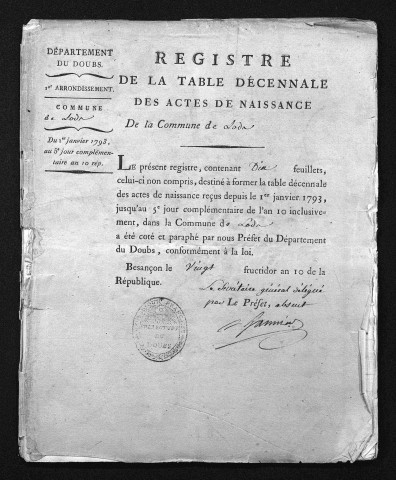 DÉPARTEMENT
DU DOUBS.
1er ARRONDISSEMENT.
COMMUNE
de Lods
Du 1er janvier 1793,
au 5e jour complémen-
taire an 10 rép.
REGISTRE
DE LA TABLE DÉCENNALE
DES ACTES DE NAISSANCE
De la Commune de Lods
LE présent registre, contenant Dix feuillets,
celui-ci non compris, destiné à former la table décennale
des actes de naissance reçus depuis le 1er janvier 1793,
jusqu'au 5e jour complémentaire de l'an 10 inclusive-
ment, dans la Commune de Lods
a été coté et paraphé par nous Préfet du Département
du Doubs, conformément à la loi.
Besançon le Vingt fructidor an 10 de la
République.
Le Secrétaire général délégué
par Le Préfet, absent
DOUBS